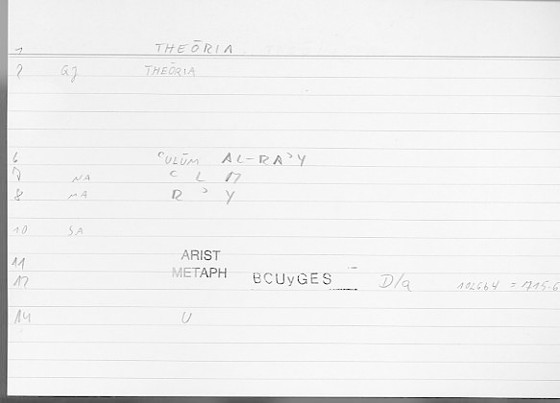 1 THEŌRIA
2 GJ THEŌRIA
6 ʿULŪM AL-RAʾY
7 NA ʿ L M
8 NA R ʾ Y
10 SA
11 ARIST
METAPH
BCUyGES D/a
14 U